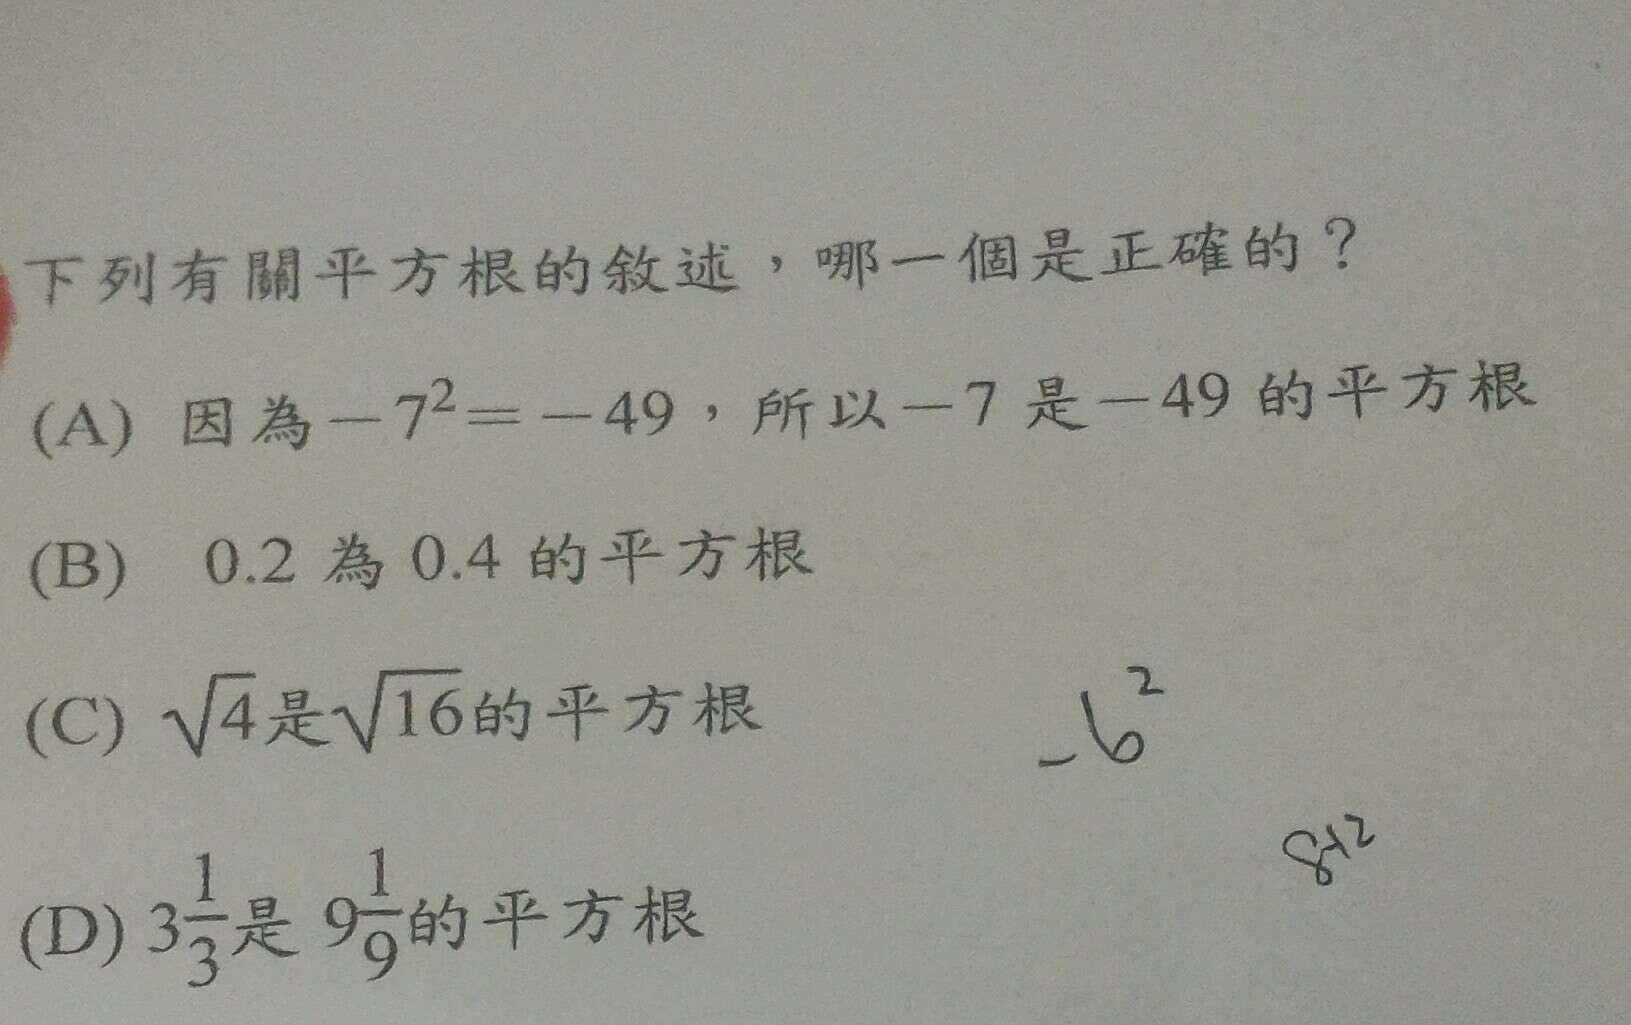 下列有關平方根的敘述，哪一個是正確的？
(A) 因為－7²＝－49，所以－7 是－49 的平方根
(B) 0.2 為 0.4 的平方根
(C) √4是√16的平方根
-6²
(D) 3 1/3是 9 1/9的平方根